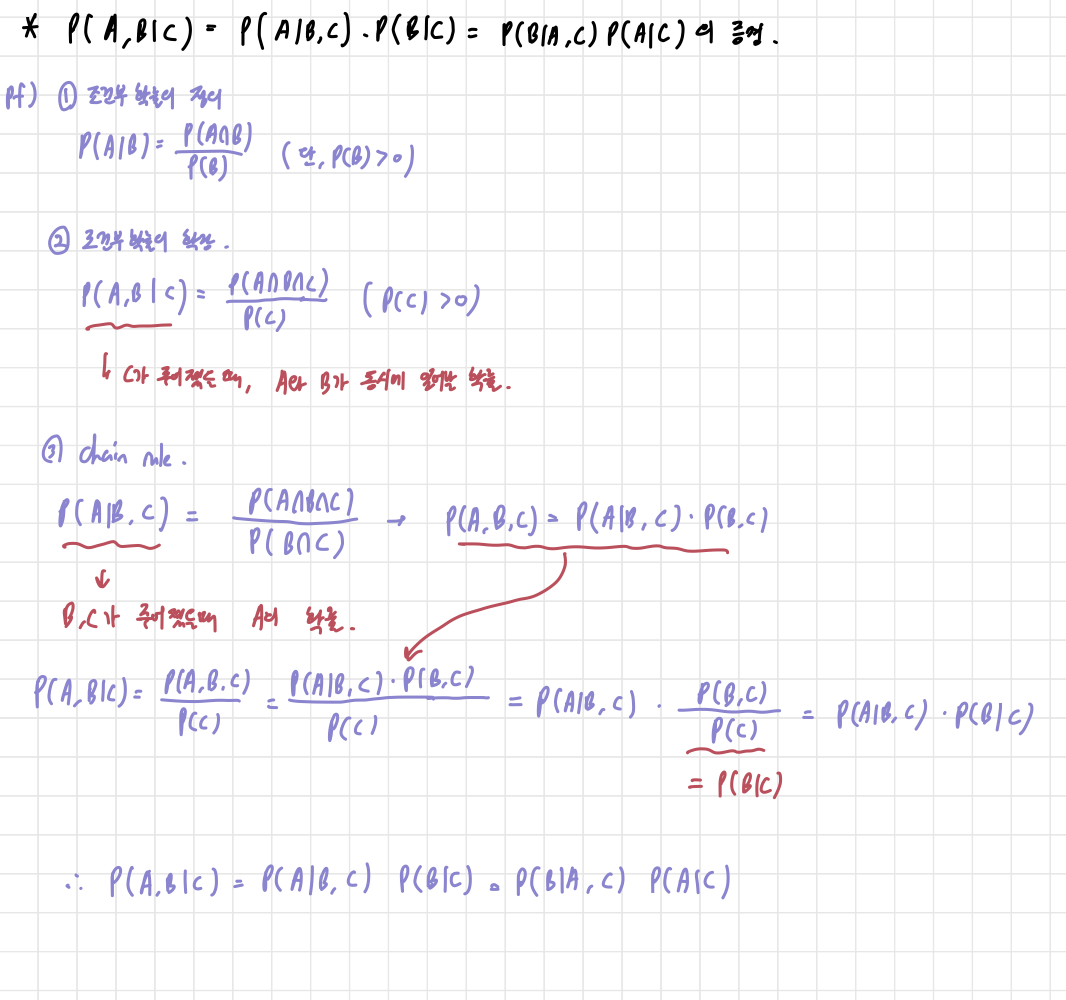 * P(A,B|C) = P(A|B,C)·P(B|C) = P(B|A,C)P(A|C)의 증명.
pf) ① 조건부 확률의 정의
P(A|B) = P(A∩B)/P(B) (단, P(B)>0)
② 조건부 확률의 확장.
P(A,B|C) = P(A∩B∩C)/P(C) (P(C)>0)
↳ C가 주어졌을 때, A와 B가 동시에 일어날 확률.
③ chain rule.
P(A|B,C) = P(A∩B∩C)/P(B∩C) → P(A,B,C) = P(A|B,C)·P(B,C)
↓
B,C가 주어졌을때 A의 확률.
P(A,B|C) = P(A,B,C)/P(C) = P(A|B,C)·P(B,C)/P(C) = P(A|B,C) · P(B,C)/P(C) = P(A|B,C)·P(B|C)
= P(B|C)
∴ P(A,B|C) = P(A|B,C) P(B|C) = P(B|A,C) P(A|C)